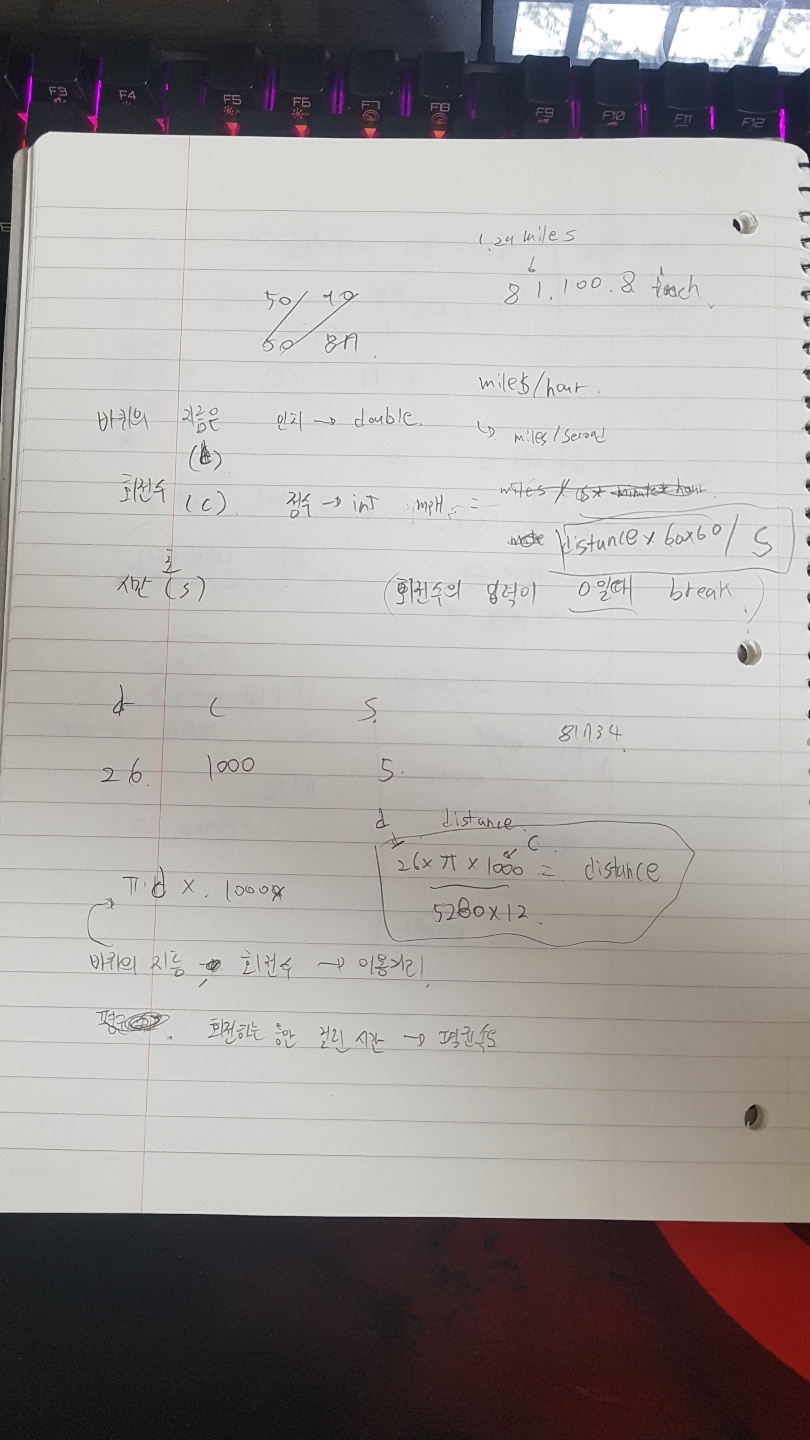 F3 F4 F5 F6 F7 F8 F9 F10 F11 F12
1.24 miles
6
81,100.8 inch
50
60
miles/hour.
바퀴의 지름은 인치 → double.
↳ miles/second
회전수 (c) 정수 → int mpH =
distance x 60x60 / S
초
시간 (s) (회전수의 입력이 0일때 break.)
d c s.
81734
26. 1000 5.
d distance.
c
26 x π x 1000 = distance
5280x12.
π·d x. 1000
바퀴의 지름, 회전수 → 이동거리
평균. 회전하는 동안 걸린 시간 → 평균속도